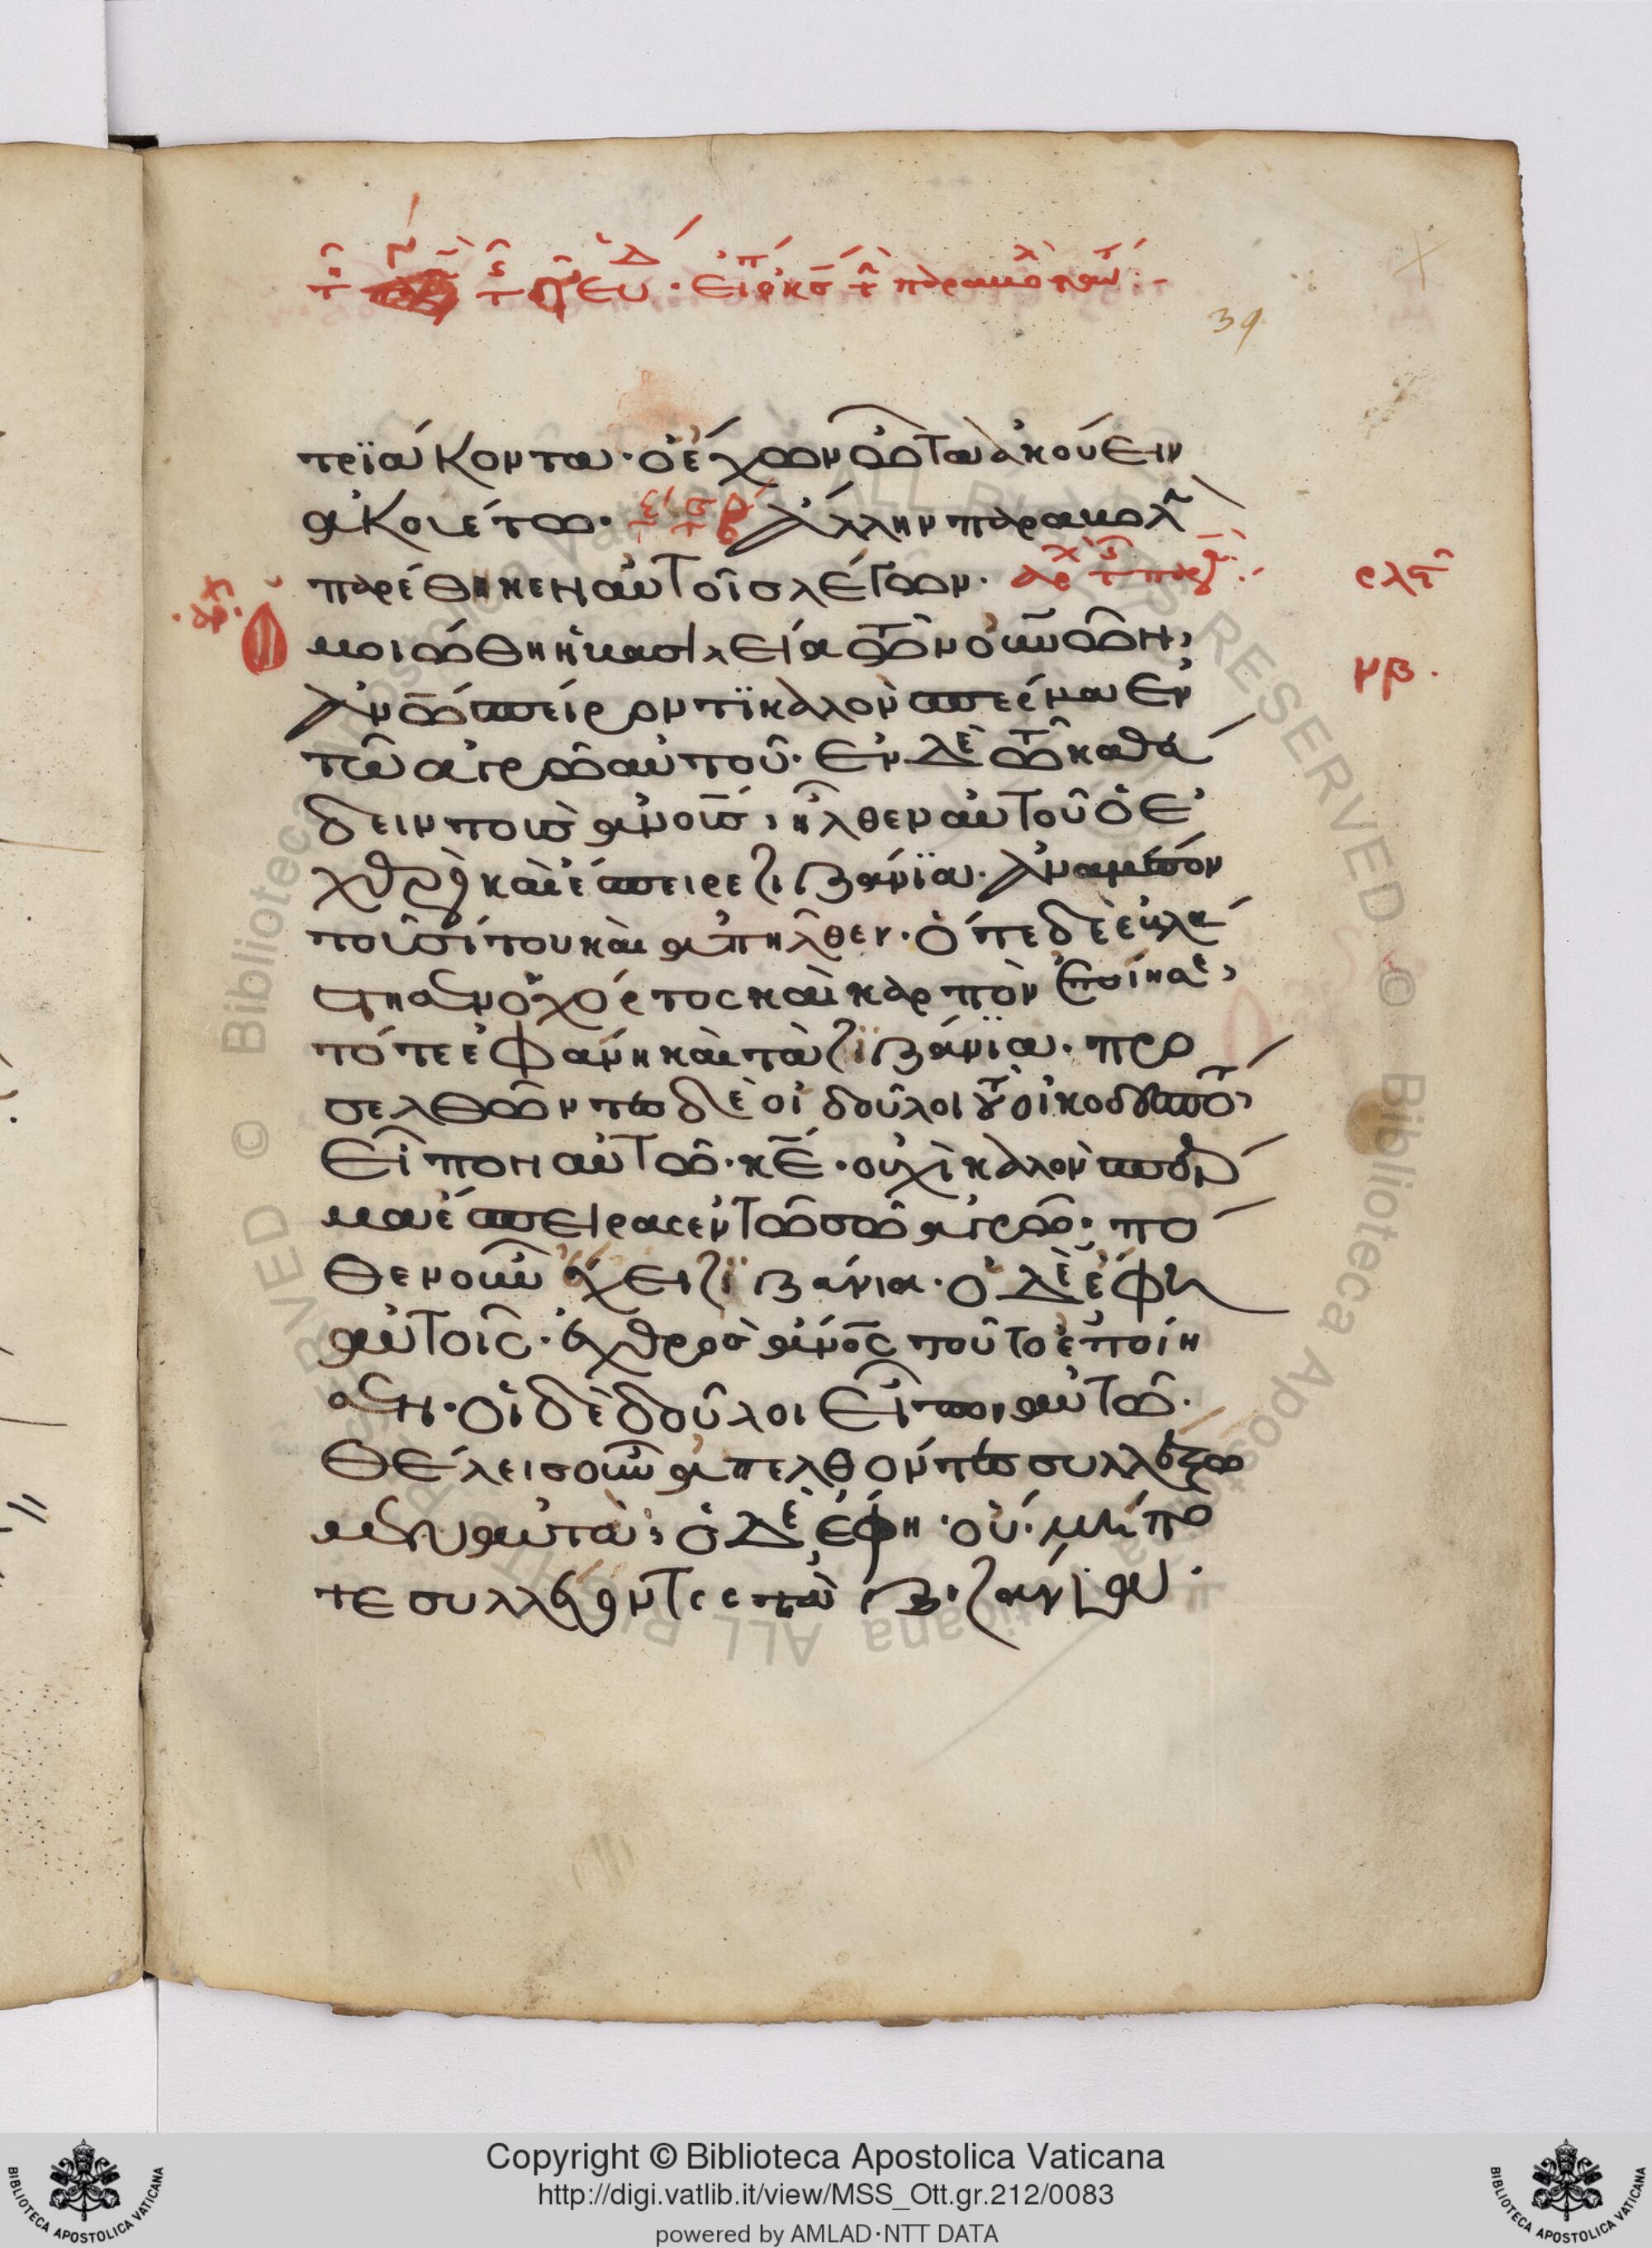 39
τριάκοντα· ὁ ἔχων ὦτα ἀκούειν
ἀκουέτω· Ἄλλην παραβολὴν
παρέθηκεν αὐτοῖς λέγων·
ρλϛ
μοιώθη ἡ βασιλεία τῶν οὐνῶν,
μβ.
ἀνῶ σπείροντι καλὸν σπέρμα ἐν
τῶ ἀγρῶ αὐτοῦ· ἐν δὲ τῶ καθεύ
δειν τοὺς ἀνους, ἦλθεν αὐτοῦ ὁ ἐ
χθρὸς καὶ ἔσπειρε ζιζάνια· ἀναμέσον
τοῦ σίτου καὶ ἀπῆλθεν· ὅτε δὲ ἐβλά
στησεν ὁ χόρτος καὶ καρπὸν ἐποίησε,
τότε ἐφάνη καὶ τὰ ζιζάνια· προ
σελθόντες δὲ οἱ δοῦλοι τοῦ οἰκοδεσπότου
εἶπον αὐτῶ· κε· οὐχὶ καλὸν σπέρ
μα ἔσπειρας ἐν τῶ σῶ ἀγρῶ· πό
θεν οὖν ἔχει ζιζάνια· ὁ δὲ ἔφη
αὐτοῖς· ἐχθρὸς ἀνος τοῦτο ἐποίη
σεν· οἱ δὲ δοῦλοι εἶπον αὐτῶ·
θέλεις οὖν ἀπελθόντες συλλέξω
μεν αὐτά; ὁ δὲ ἔφη· οὔ· μήπο
τε συλλέγοντες τὰ ζιζάνια·
Copyright © Biblioteca Apostolica Vaticana
http://digi.vatlib.it/view/MSS_Ott.gr.212/0083
powered by AMLAD·NTT DATA
BIBLIOTECA APOSTOLICA VATICANA
BIBLIOTECA APOSTOLICA VATICANA